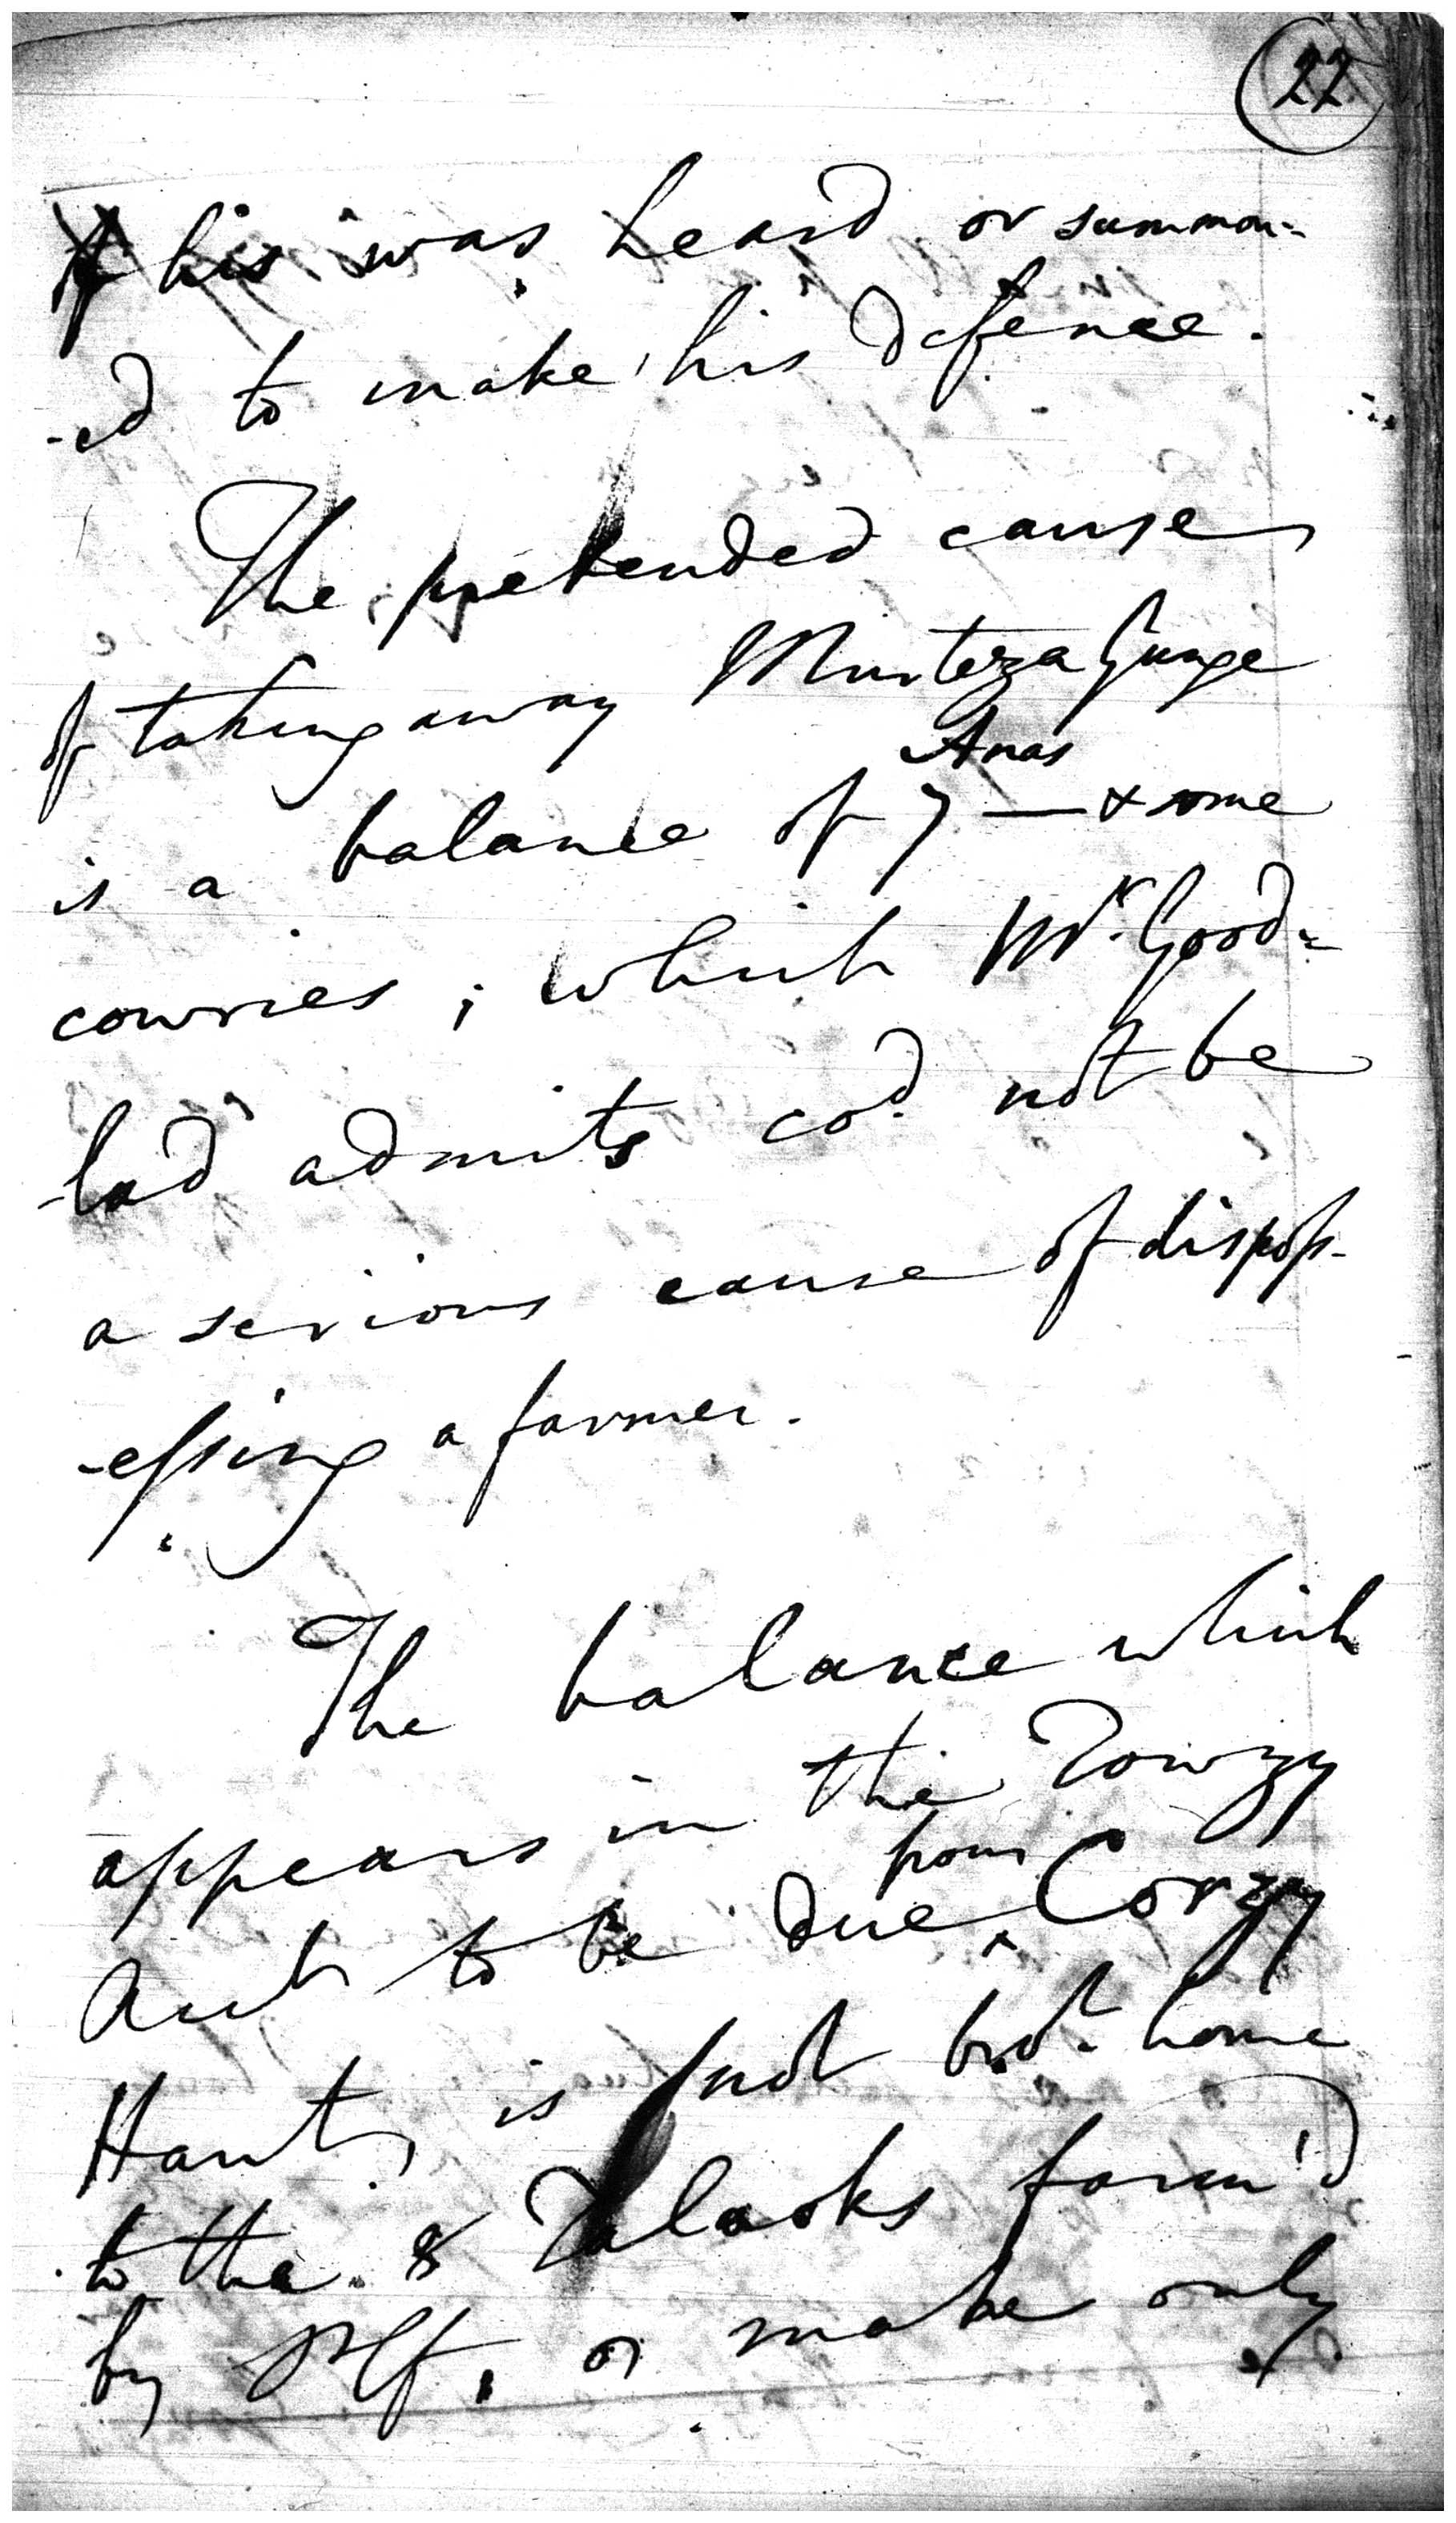 22
his was heard or summon=
-ed to make his defence.
The pretended cause
of taking away Murteza Gunge
Anas
is a balance of 7 — & some
cowries; which Mr. Good=
-lad admits cod. not be
a serious cause of disposs-
-essing a farmer.
The balance which
appears in the Towzy
from
to be due ^ Corzy
Haut, is not brot. home
to the 8 Talooks farm'd
by Plf, or make only